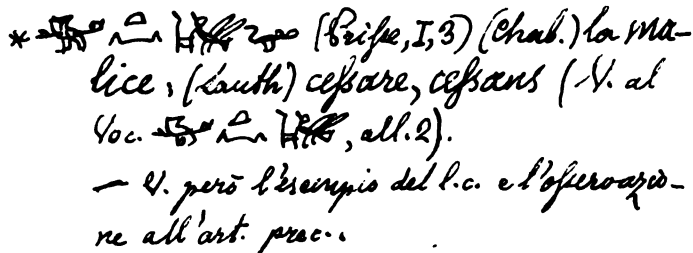 * (Prisse, I, 3) (Chab.) la ma-
lice, (Lauth) cessare, cessans (V. al
Voc. , all. 2).
— V. però l'esempio del l.c. e l'osservazio-
ne all'art. prec..